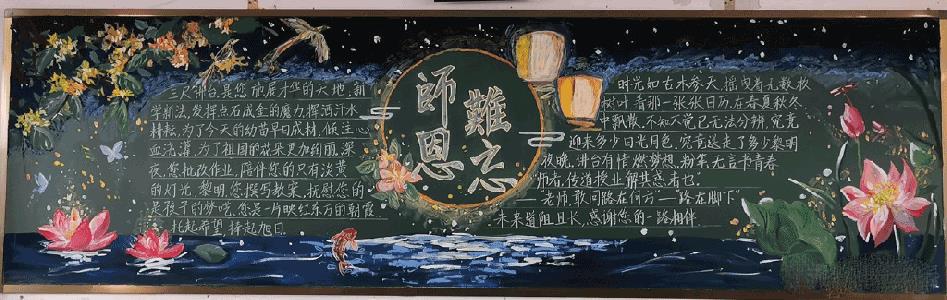 三尺讲台,是您施展才华的天地,新
学新法,发挥点石成金的魔力,挥洒汗水
耕耘,为了今天的幼苗早日成材,倾注心
血浇灌,为了祖国的花朵更加绚丽。深
夜,您批改作业,陪伴您的只有淡黄
的灯光,黎明,您撰写教案,抚慰您的
是孩子的梦呓,您是一片映红东方的朝霞
托起希望,择起旭日。
師恩
難忘
时光如古木参天,摇曳着无数枚
树叶 若那一张张日历,在春夏秋冬
中飘散,不知不觉已无法分辨,究竟
迎来多少日光月色,究竟送走了多少黎明
夜晚,讲台有情燃梦想,粉笔无言书青春
师者,传道授业解惑者也
老师,敢问路在何方——路在脚下
未来道阻且长,感谢您的一路相伴